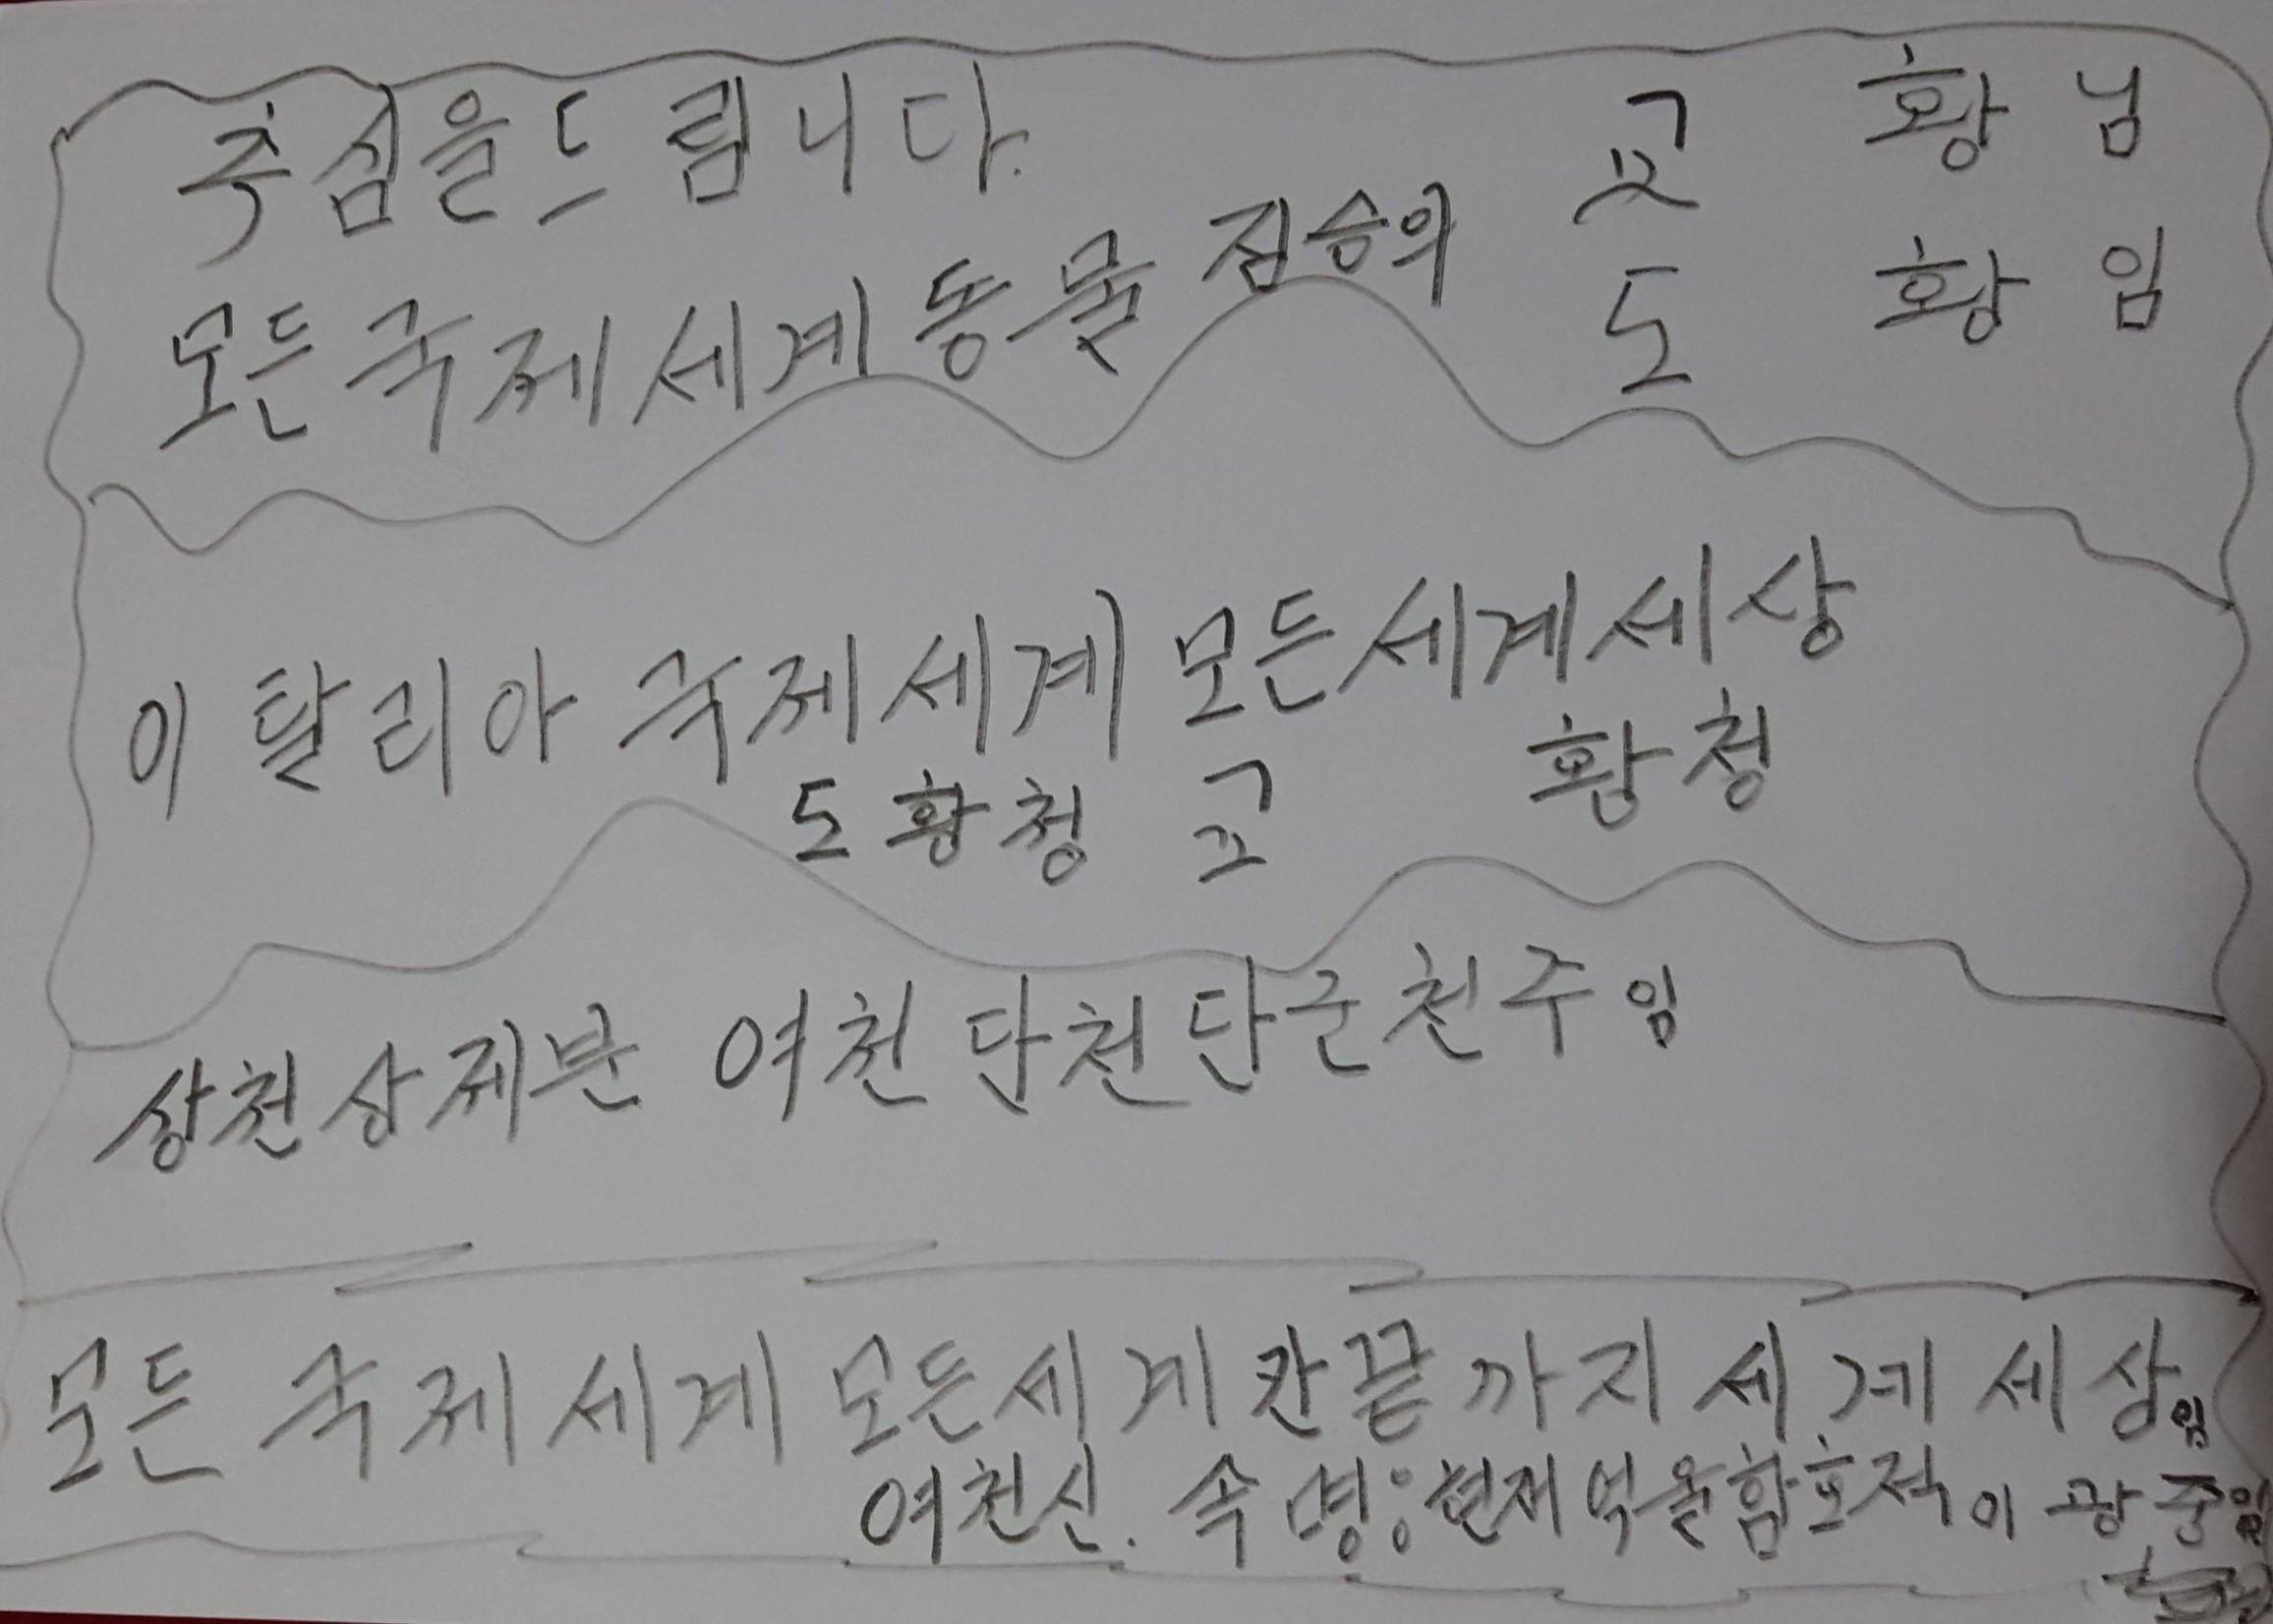 충심을드립니다. 교 황 님
모든국제세계동물 짐승의 도 황 임
이 탈리아 국제세계 모든세계세상
도황청 교 황청
상천상제분 여천단천단군천주임
모든 국제세계 모든세계칸끝까지세계세상임
여천신. 속 명: 현재억울함호적이광준임